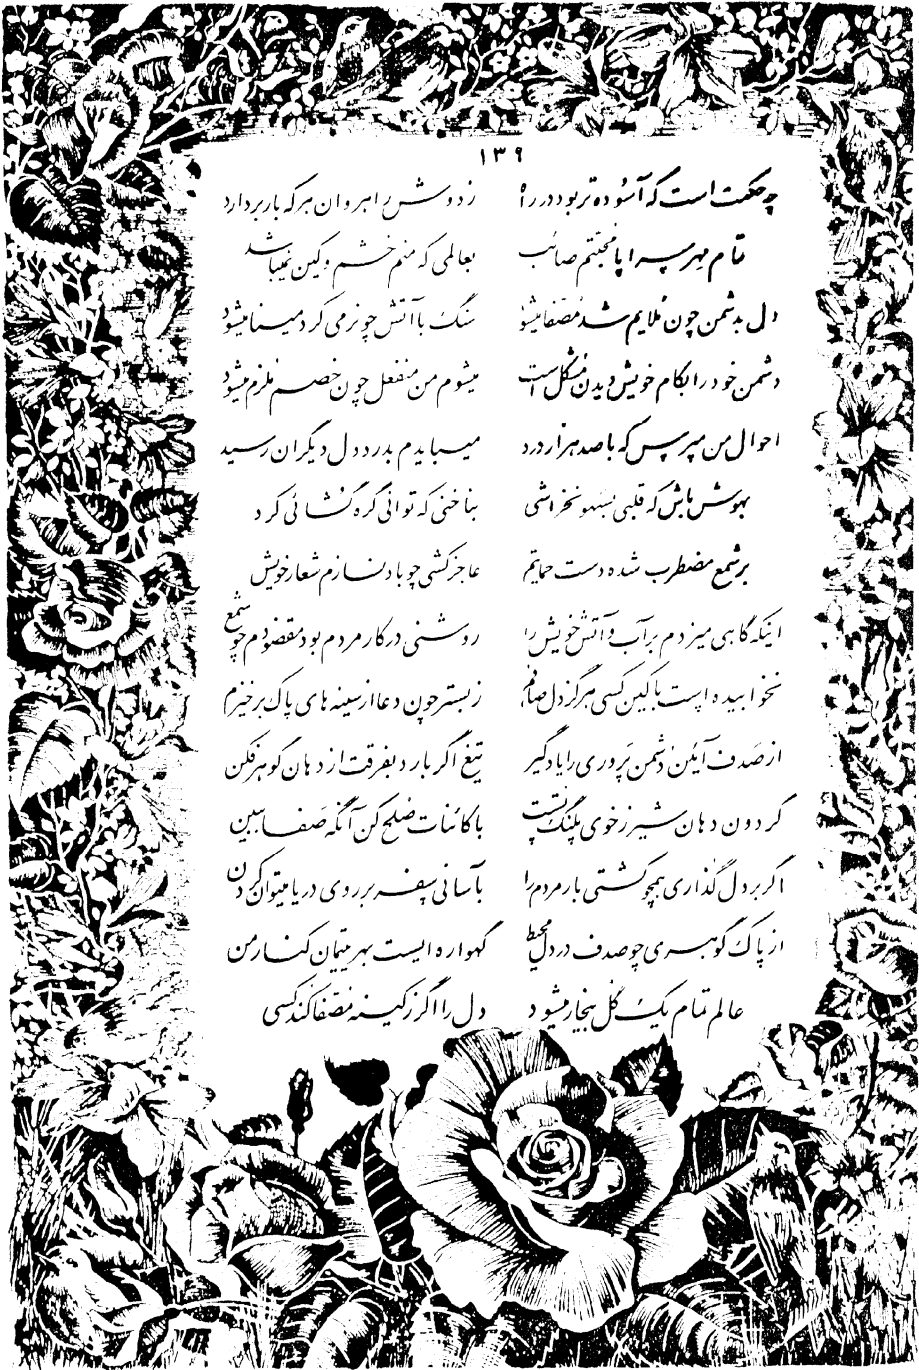 ۱۳۹
چه حکمت است که آسوده تر بود در راه ز دوش راهروان هر که بار بردارد
تمام مهر سراپا محبتم صائب بعالمی که منم خشم و کین نمیباشد
دل بدشمن چون ملایم شد مصفا میشود سنگ با آتش چو نرمی کرد مینا میشود
دشمن خود را بکام خویش دیدن مشکل است میشوم من منفعل چون خصم ملزم میشود
احوال من مپرس که با صد هزار درد میبایدم بدرد دل دیگران رسید
بهوش باش که قلبی بسهو نخراشی بناخنی که توانی گره گشائی کرد
بر شمع مضطرب شده دست حمایتم عاجزکشی چو باد نسازم شعار خویش
اینکه گاهی میزدم بر آب و آتش خویش را روشنی در کار مردم بود مقصودم چو شمع
نخوابیده است با کین کسی هرگز دل صافم ز بستر چون دعا از سینه های پاک برخیزم
از صدف آئین دشمن پروری را یاد گیر تیغ اگر بارد بفرقت از دهان گوهر فکن
گردون دهان شیر ز خوی پلنگ تست با کائنات صلح کن آنگه صفا ببین
اگر بر دل گذاری همچو کشتی بار مردم را بآسانی سفر بر روی دریا میتوان کردن
از پاک گوهری چو صدف در دل محیط گهواره ایست بهر یتیمان کنار من
عالم تمام یک گل بیخار میشود دل را اگر ز کینه مصفا کند کسی